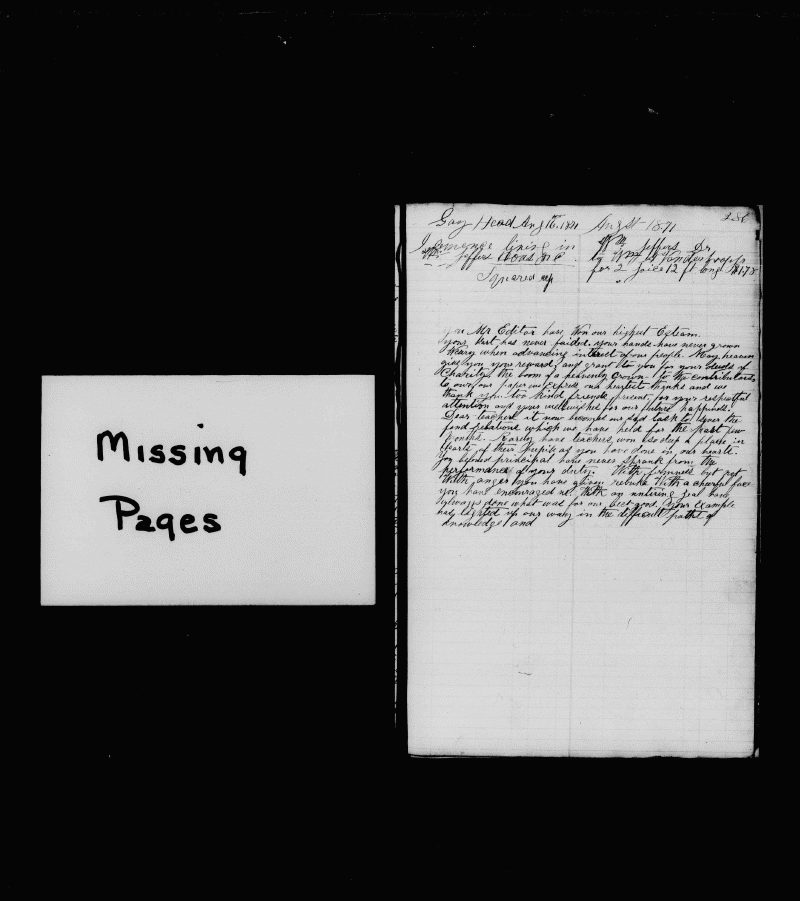 Missing
Pages
Gay Head Aug 16. 1871
August 1871
286
I commence living in
Jeffers House
Squared up
Wm Jeffers Dr
to Wm A Vanderhoop
for 2 Joice 12 ft long
you Mr Editor have Won our highest Esteam.
Your Hart has never failed. your hands have never grown
Weary when advancing interest of our people. May heaven
give you your reward, and grant to you for your deeds of
Charity the boom of a heavenly Crown. to the contributors
to own our paper we Express our heartest thanks and we
thank you too Kind friends present for your respectful
attention and your well wishes for our future happiness.
Dear teachers it now becomes our sad task to sever the
fond relations which we have held for the past few
Months. Rarely have teachers won so deep a place in
hearts of their Pupils as you have done in our hearts.
our beloved principal have never shrank from the
performance of your duty. With firmness but not
With anger you have given rebuke With a cheerful face
you have encouraged us. With an untiring zeal have
always done what was for our best good. Your Example
has lighted up our way in the difficult paths of
knowledge and